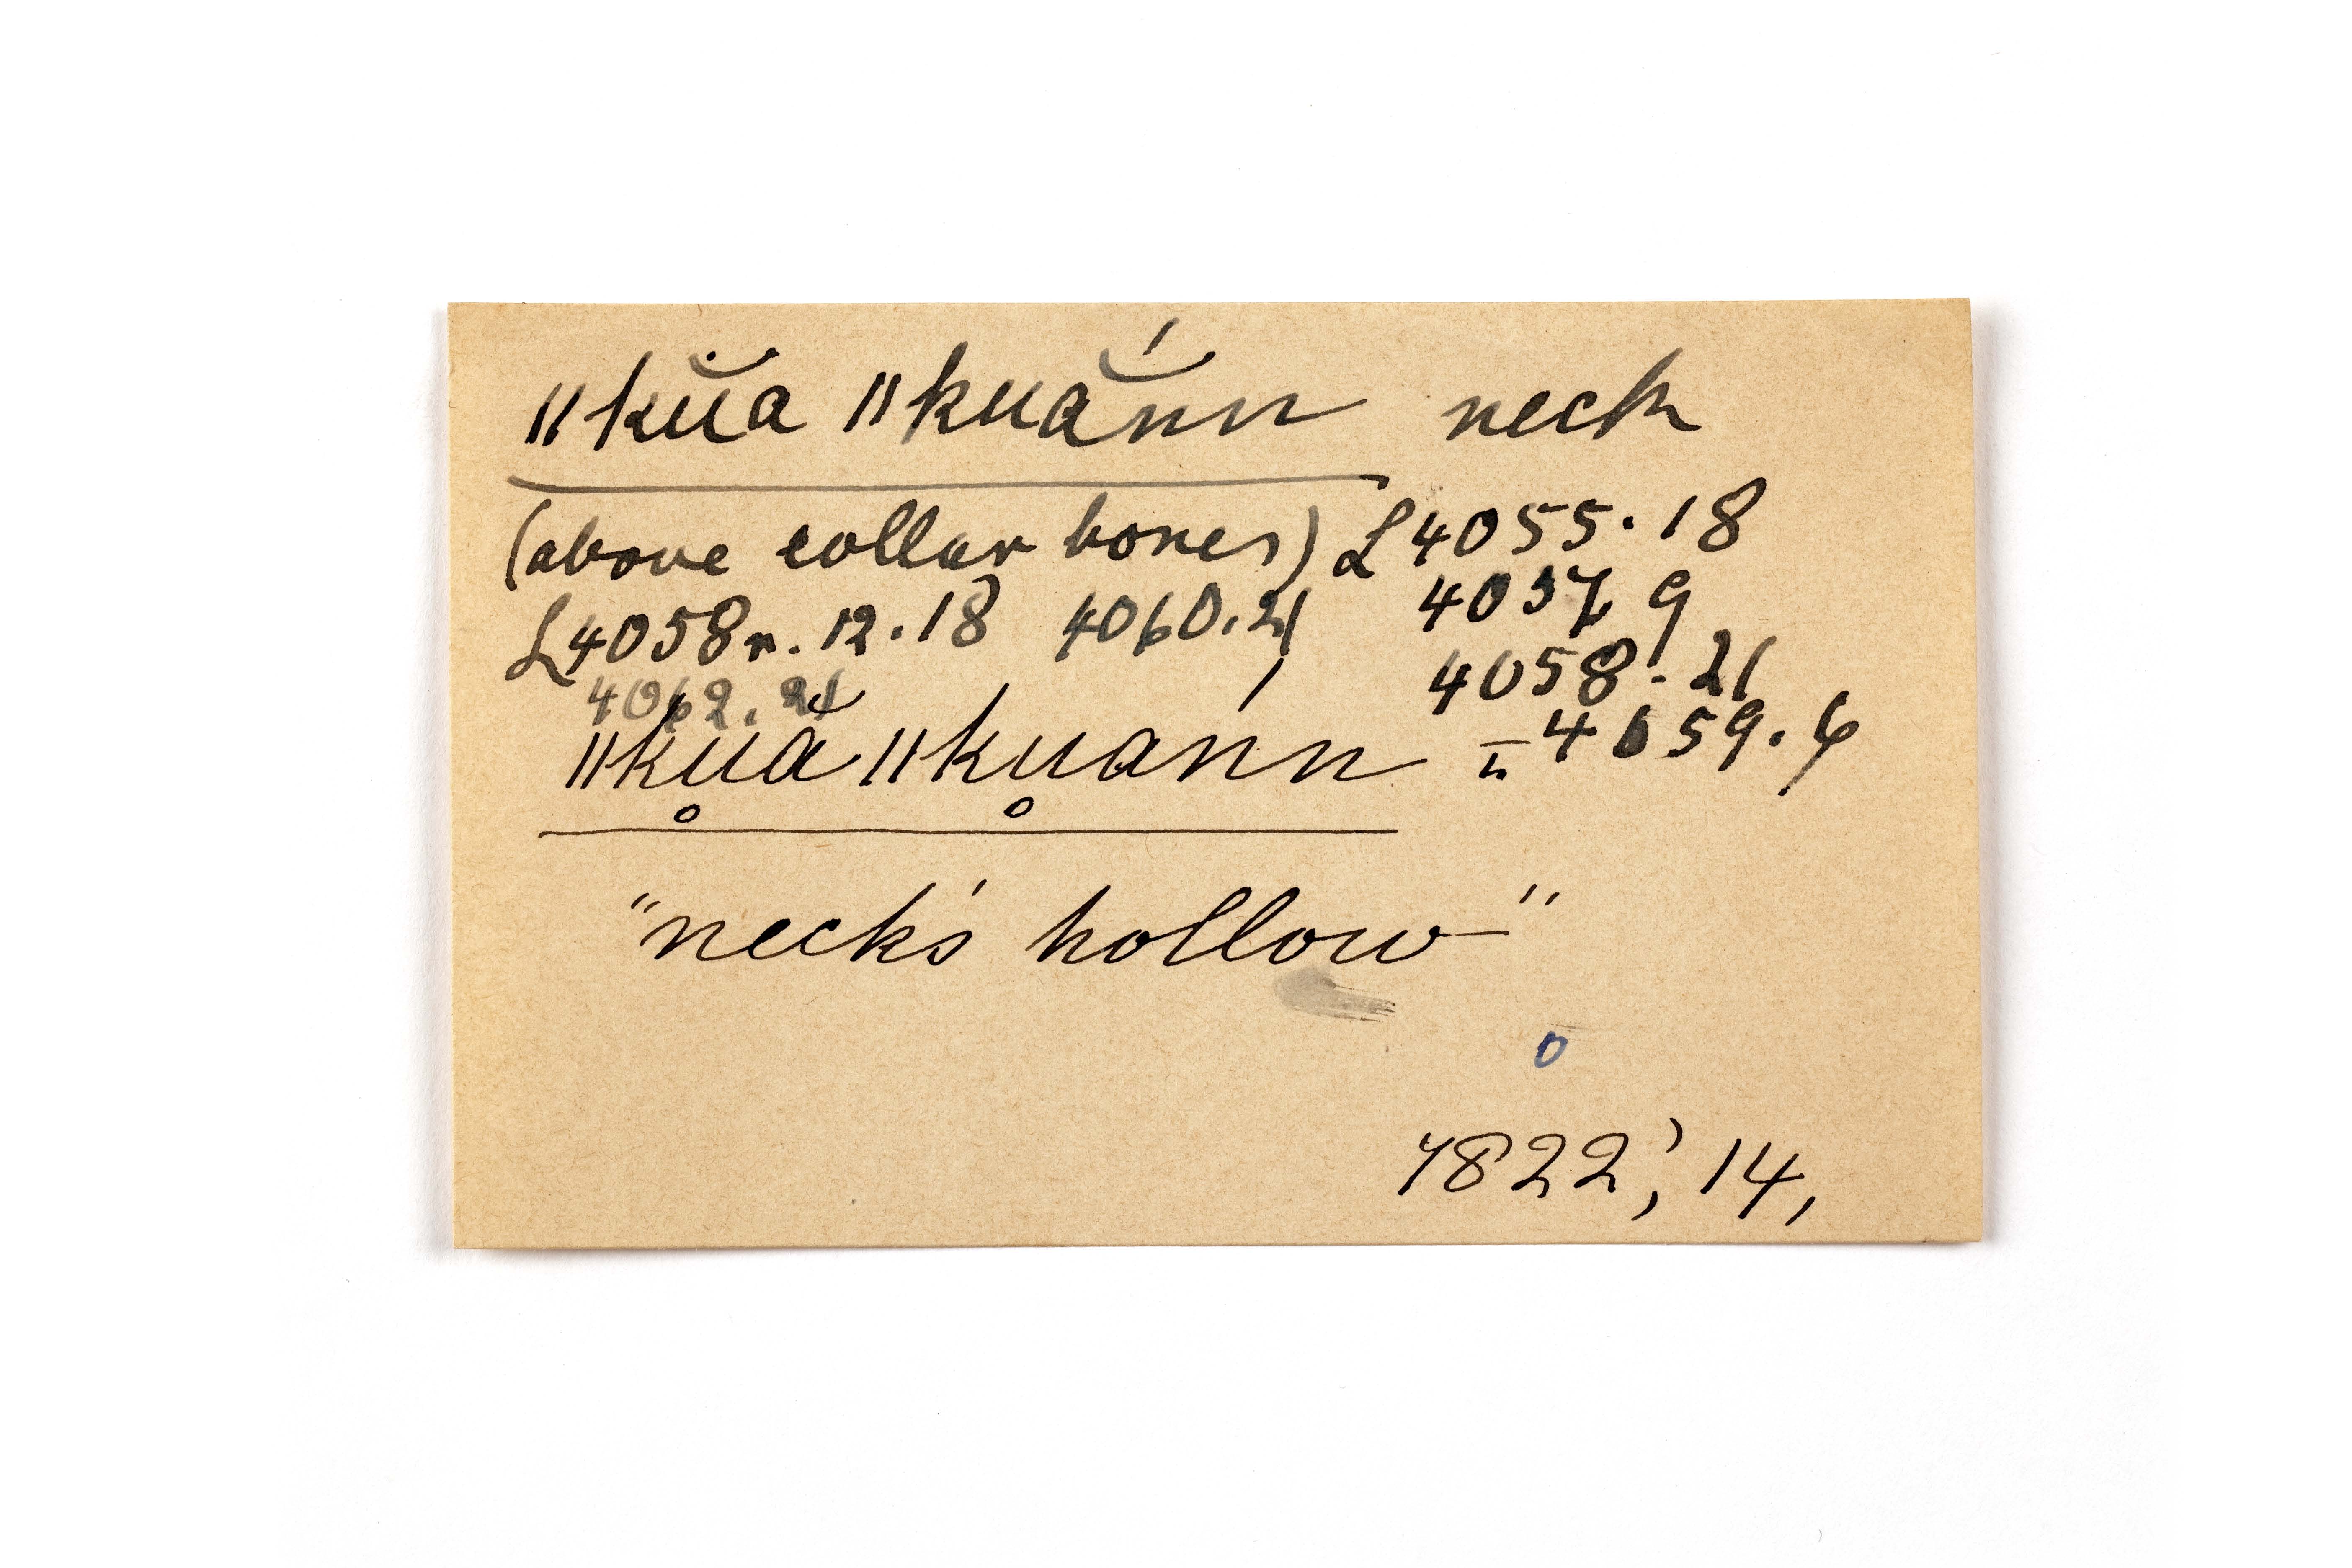 ǁkŭa ǁkuā̆́nn neck
(above collar bones) L 4055.18
L 4058r. 12.18 4060.21 4057 9
4062.21 4058.21
ǁkṷă ǁkṷann 4059.6
"neck's hollow"
0
7822', 14,